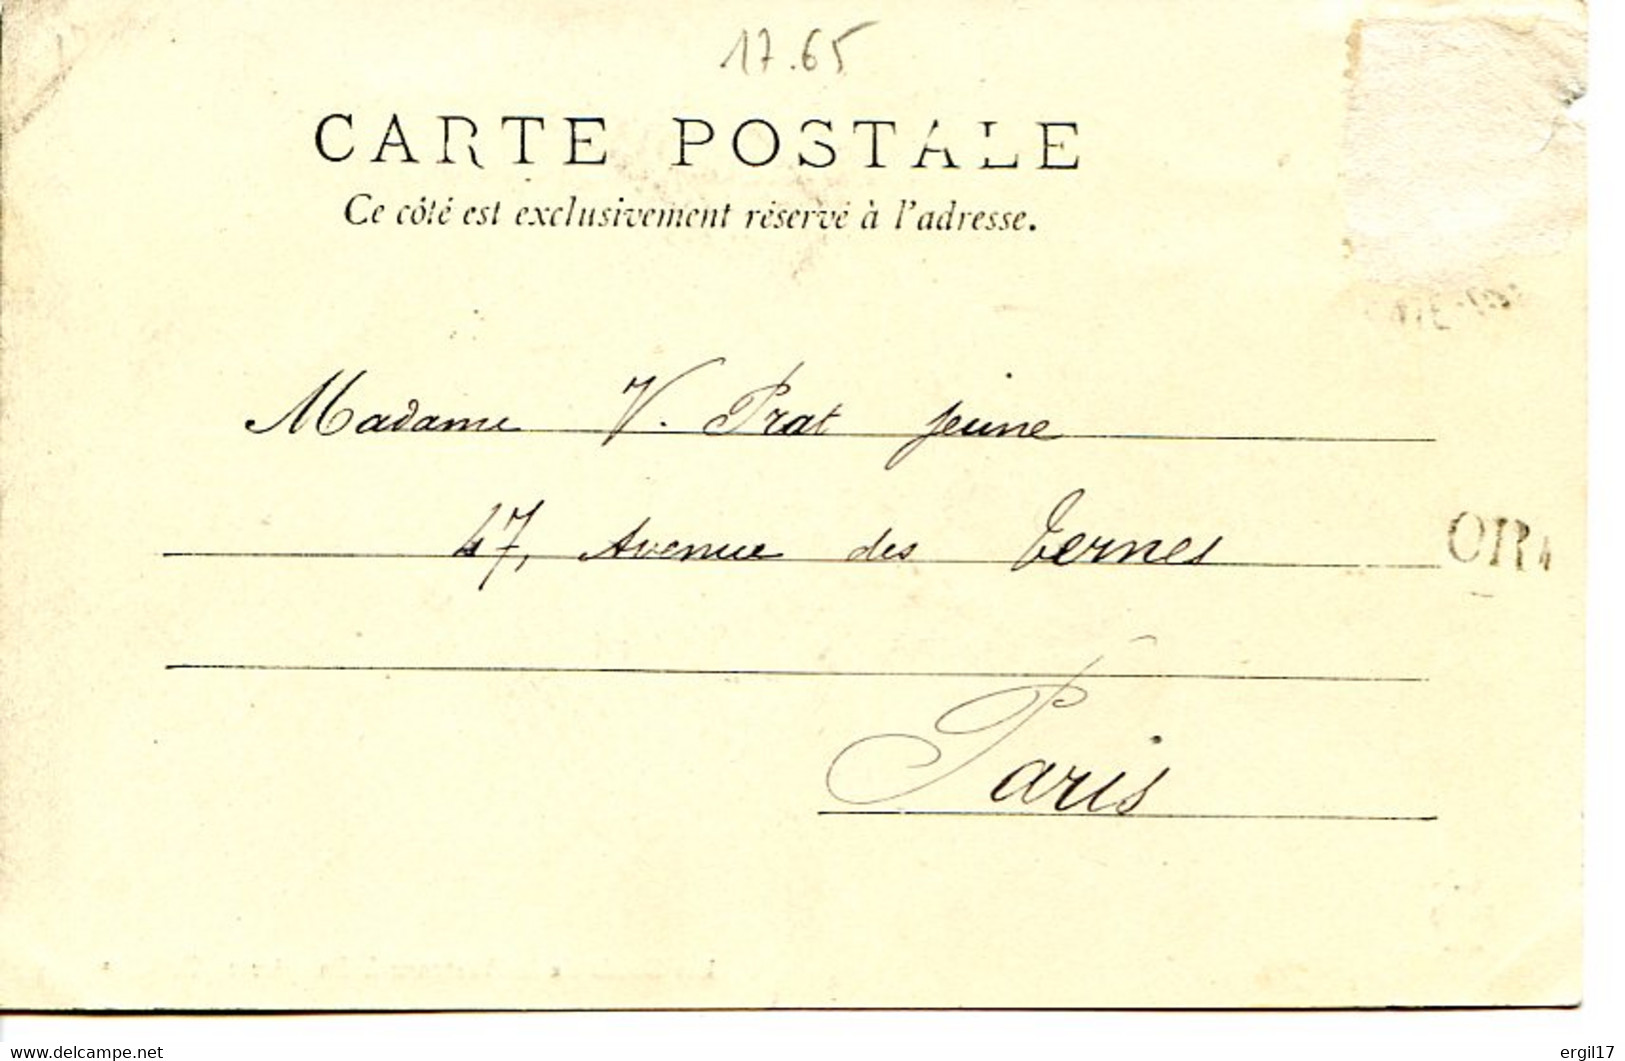 17.65
CARTE POSTALE
Ce côté est exclusivement réservé à l'adresse.
Madame V. Prat jeune
47, Avenue des Ternes
OR
Paris
www.delcampe.net
ergil17